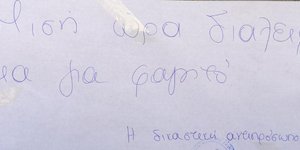 Μισή ώρα διάλειμ
μα για φαγητό
Η δικαστική αντιπρόσωπο